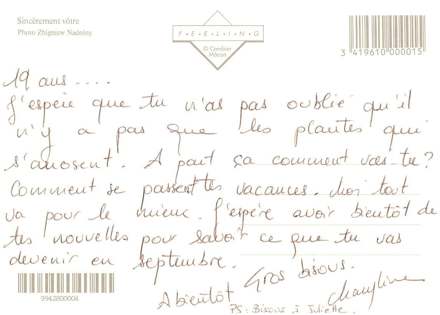 Sincèrement vôtre
Photo Zbigniew Nadolny
F·E·E·L·I·N·G
3 419610 000015
19 ans....
J'espère que tu n'as pas oublié qu'il
n'y a pas que les plantes qui
s'arrosent. A part ça comment vas-tu?
Comment se passent tes vacances. Moi tout
va pour le mieux. J'espère avoir bientôt de
tes nouvelles pour savoir ce que tu vas
devenir en septembre.
Gros bisous.
A bientôt
0942800004
PS: Bisous à Juliette.